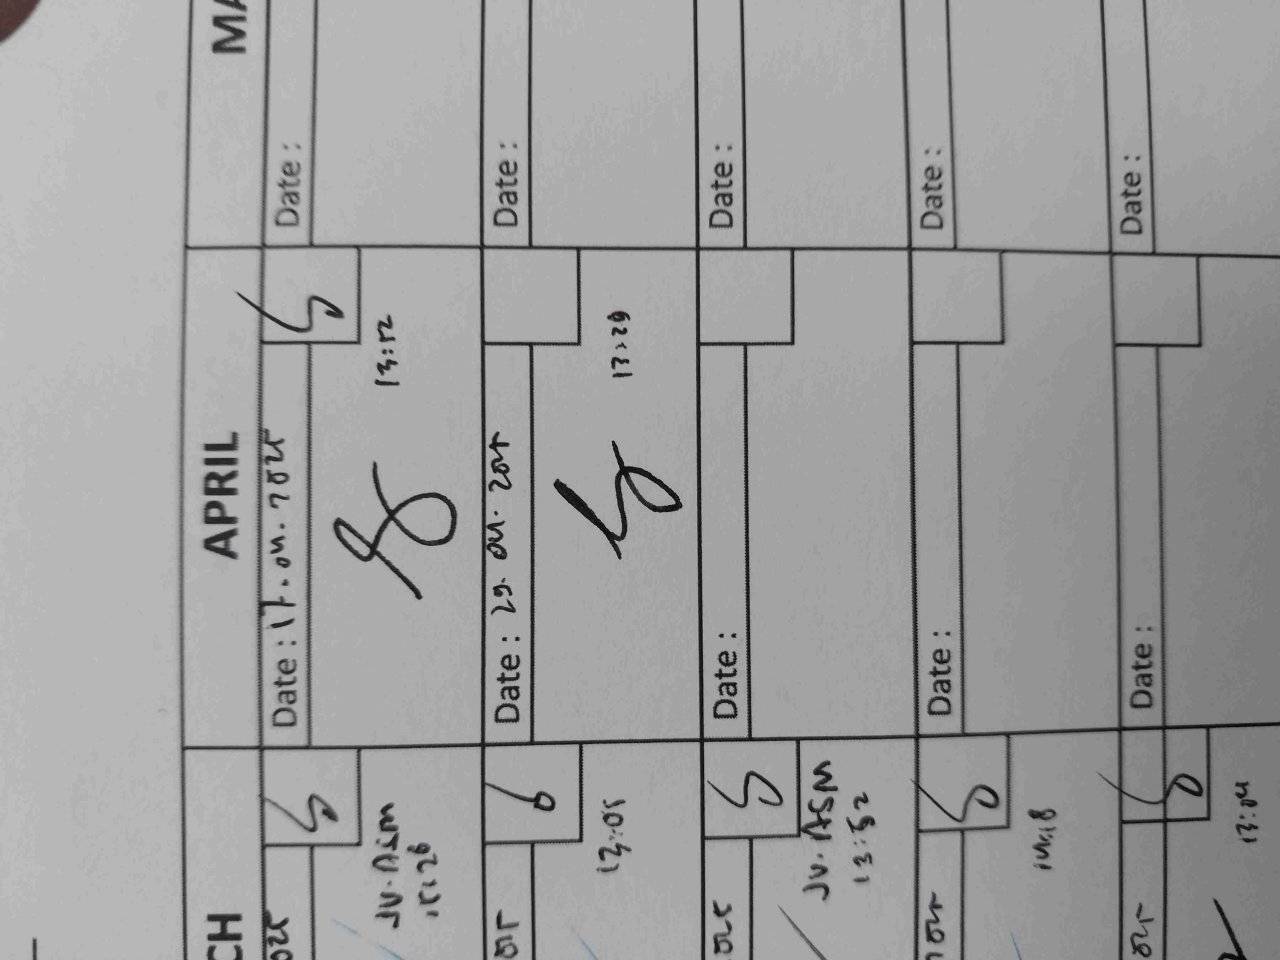 CH
APRIL
MA
Date : 17.04.2025
13:12
Date :
JV. ASM
Date : 29.04.2025
13:29
Date :
13:05
Date :
Date :
JV. ASM
13:52
Date :
Date :
14:18
Date :
Date :
13:04